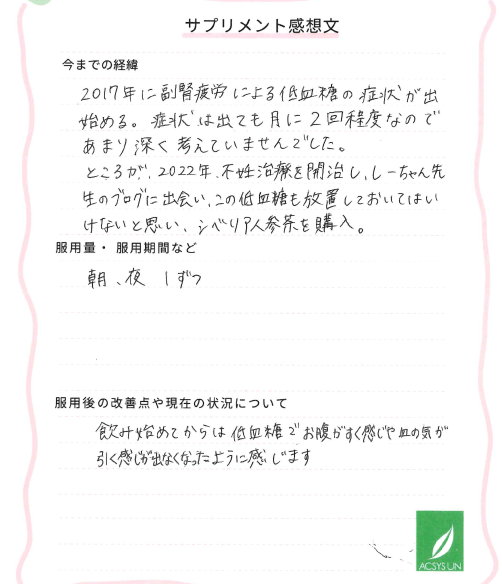 サプリメント感想文
今までの経緯
2017年に副腎疲労による低血糖の症状が出
始める。症状は出ても月に2回程度なので
あまり深く考えていませんでした。
ところが、2022年、不妊治療を開治し、しーちゃん先
生のブログに出会い、この低血糖も放置しておいてはい
けないと思い、シベリア人参茶を購入。
服用量・服用期間など
朝、夜 1ずつ
服用後の改善点や現在の状況について
飲み始めてからは低血糖でお腹がすく感じや血の気が
引く感じが出なくなったように感じます
ACSYS UN